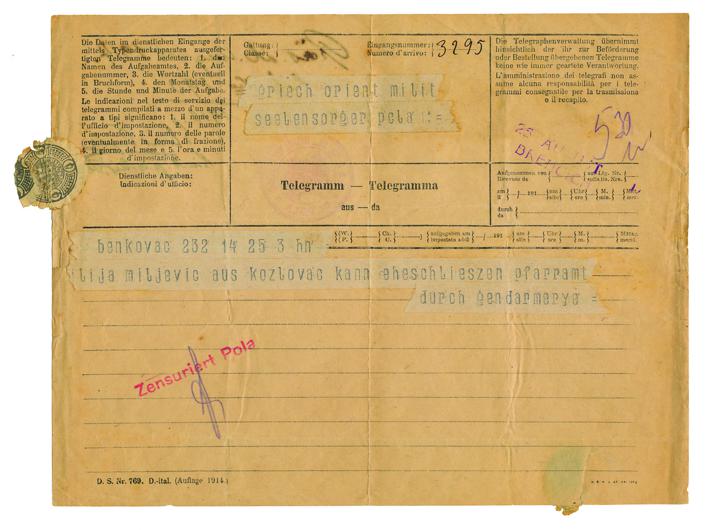 Die Daten im dienstlichen Eingange der
mittels Typendruckapparates ausgefer-
tigten Telegramme bedeuten: 1. den
Namen des Aufgabeamtes, 2. die Auf-
gabenummer, 3. die Wortzahl (eventuell
in Bruchform), 4. den Monatstag und
5. die Stunde und Minute der Aufgabe.
Le indicazioni nel testo di servizio dei
telegrammi compilati a mezzo d'un appa-
rato a tipi significano: 1. il nome del-
l'ufficio d'impostazione, 2. il numero
d'impostazione, 3. il numero delle parole
(eventualmente in forma di frazione),
4. il giorno del mese e 5. l'ora e minuti
d'impostazione.
Dienstliche Angaben:
Indicazioni d'ufficio:
Gattung:
Classe:
Eingangsnummer:
Numero d'arrivo:
3295
griech orient milit
seelensorger pola
Telegramm — Telegramma
aus — da
Die Telegraphenverwaltung übernimmt
hinsichtlich der ihr zur Beförderung
oder Bestellung übergebenen Telegramme
keine wie immer geartete Verantwortung.
L'amministrazione dei telegrafi non as-
sume alcuna responsabilità per i tele-
grammi consegnatile per la trasmissione
e il recapito.
Aufgenommen von
Ricevuto da
auf Ltg. Nr.
sulla lin. Nro.
am
il
191
um
alle
Uhr
ore
M.
min.
durch
da
(W.
(P.
Ch.
U.
aufgegeben am
impostata addì
191
um
alle
Uhr
ore
M.
m.
benkovac 232 14 25 3 hn
ilija miljevic aus kozlovac kann eheschlieszen pfarramt
durch gendarmerye =
Zensuriert Pola
D. S. Nr. 769. D.-ital. (Auflage 1914.)